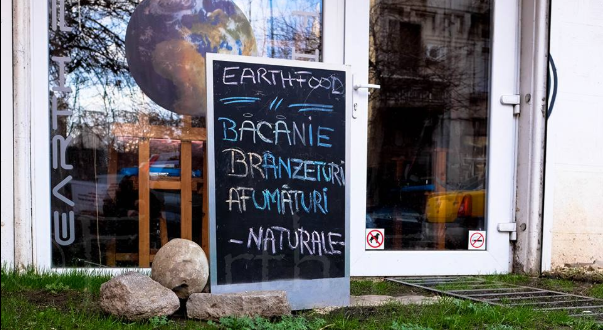 EARTH F
EARTHFOOD
BĂCĂNIE
BRÂNZETURI
AFUMĂTURI
-NATURALE-